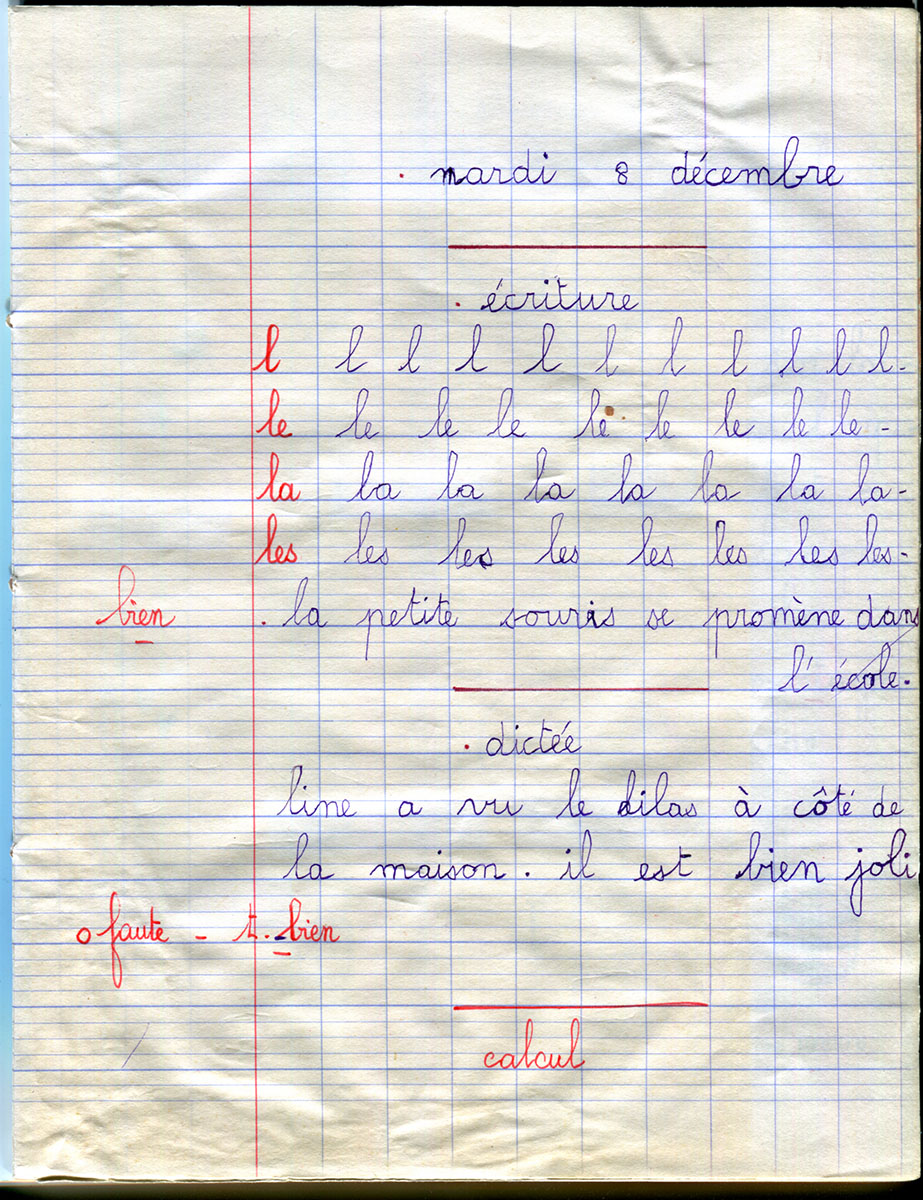 . mardi 8 décembre
. écriture
l l l l l l l l l l l.
le le le le le le le le le -
la la la la la la la la-
les les les les les les les les-
bien . la petite souris se promène dans
l'école.
. dictée
line a vu le lilas à côté de
la maison. il est bien joli
0 faute - t. bien
calcul